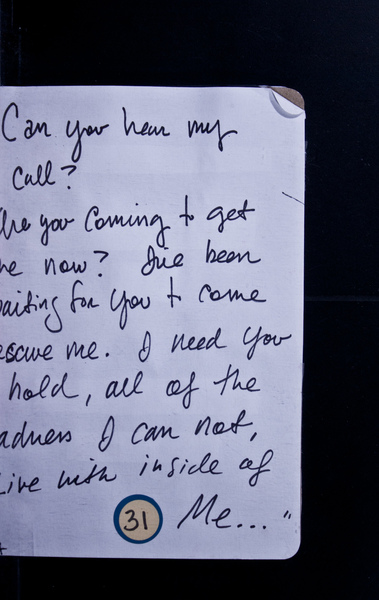 Can you hear my
call?
you coming to get
now? I've been
for you to come
me. I need you
hold, all of the
I can not,
Live with inside of
31 Me..."